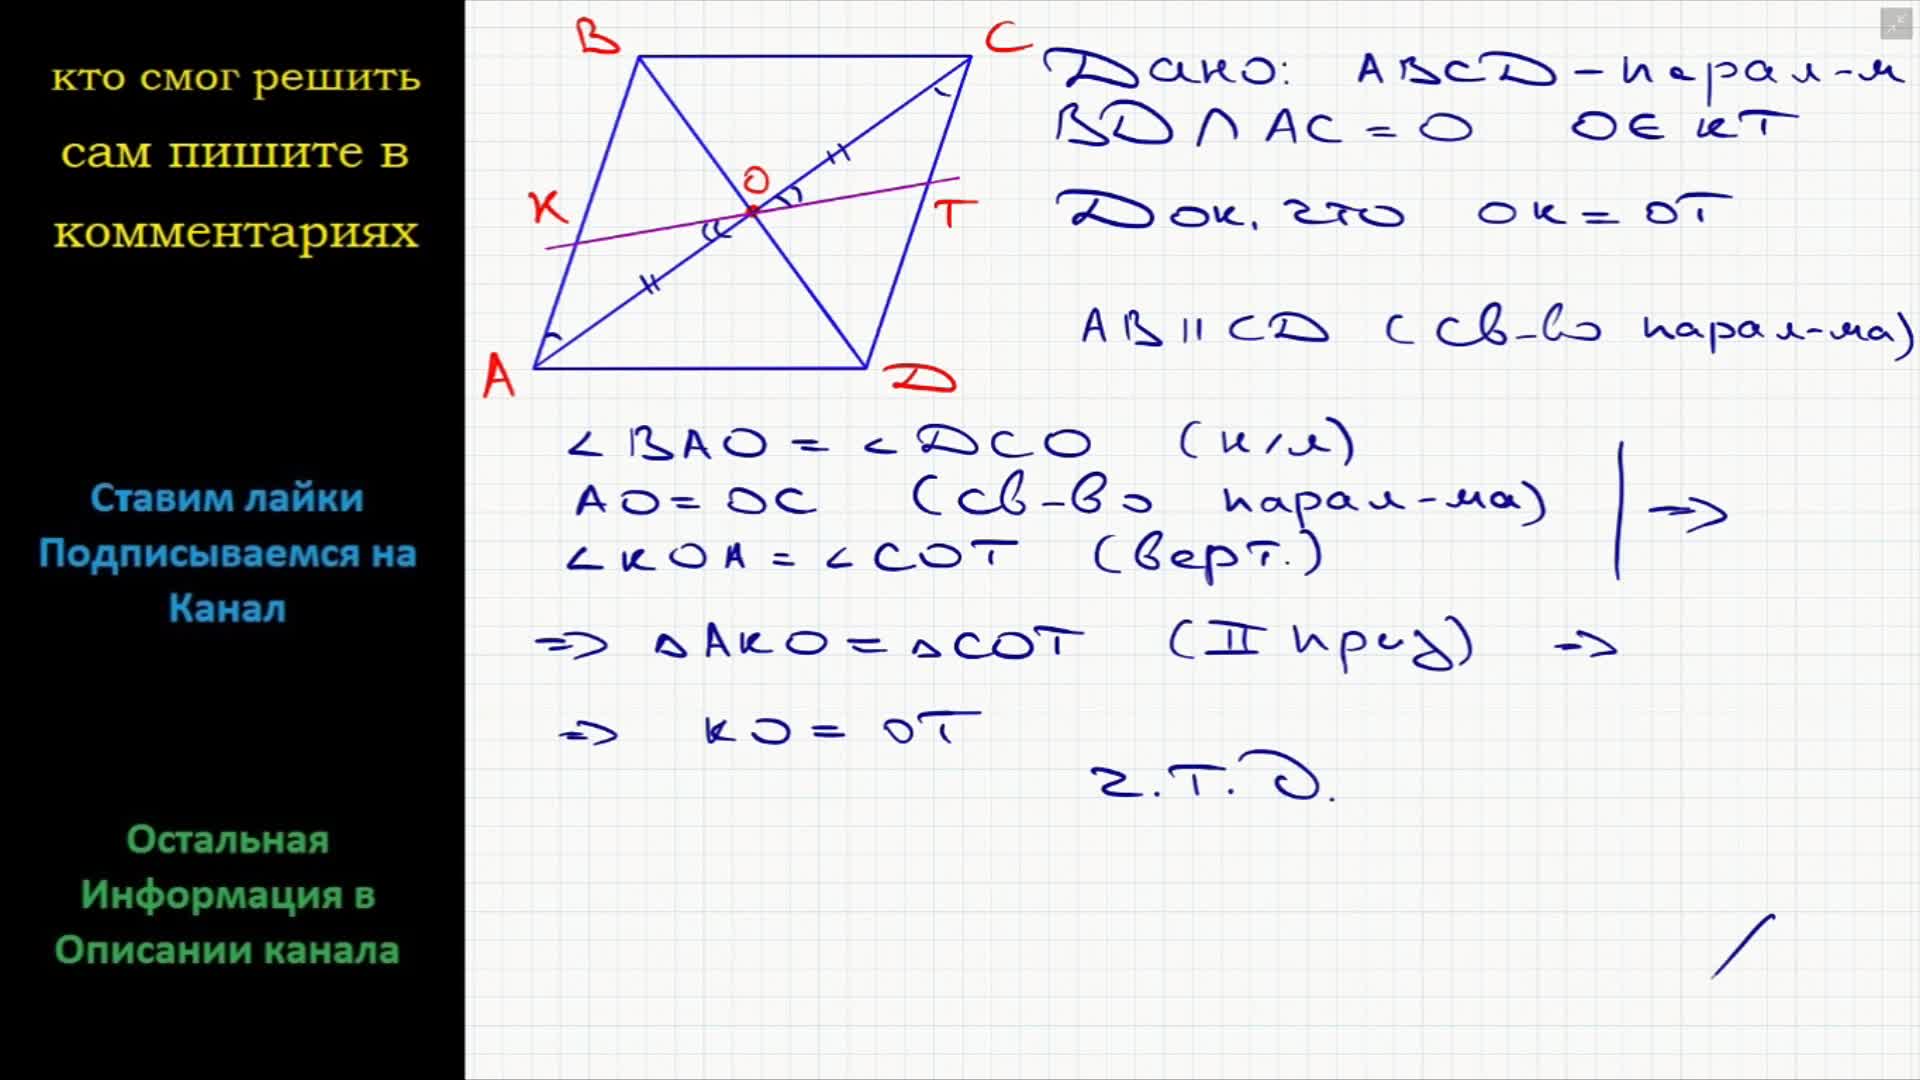 кто смог решить
сам пишите в
комментариях
Ставим лайки
Подписываемся на
Канал
Остальная
Информация в
Описании канала
B
C
K
O
T
A
D
Дано: ABCD - парал-м
BD ∩ AC = O O ∈ KT
Док, что OK = OT
AB || CD (св-во парал-ма)
∠BAO = ∠DCO (н/л)
AO = OC (св-во парал-ма)
∠KOA = ∠COT (верт.)
=>
=> ΔAKO = ΔCOT (II приз) =>
=> KO = OT
ч.т.д.